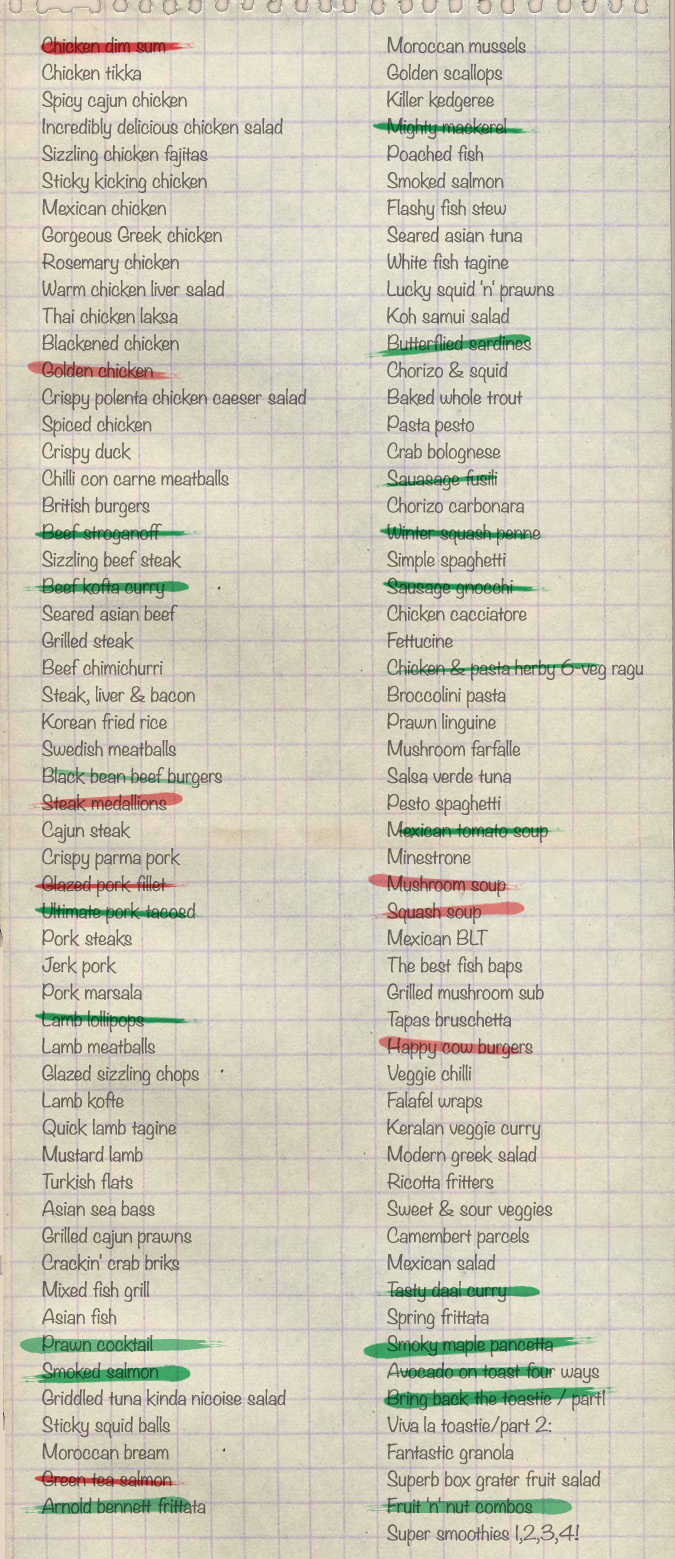 Chicken dim sum
Chicken tikka
Spicy cajun chicken
Incredibly delicious chicken salad
Sizzling chicken fajitas
Sticky kicking chicken
Mexican chicken
Gorgeous Greek chicken
Rosemary chicken
Warm chicken liver salad
Thai chicken laksa
Blackened chicken
Golden chicken
Crispy polenta chicken caeser salad
Spiced chicken
Crispy duck
Chilli con carne meatballs
British burgers
Beef stroganoff
Sizzling beef steak
Beef kofta curry
Seared asian beef
Grilled steak
Beef chimichurri
Steak, liver & bacon
Korean fried rice
Swedish meatballs
Black bean beef burgers
Steak medallions
Cajun steak
Crispy parma pork
Glazed pork fillet
Ultimate pork tacosd
Pork steaks
Jerk pork
Pork marsala
Lamb lollipops
Lamb meatballs
Glazed sizzling chops
Lamb kofte
Quick lamb tagine
Mustard lamb
Turkish flats
Asian sea bass
Grilled cajun prawns
Crackin' crab briks
Mixed fish grill
Asian fish
Prawn cocktail
Smoked salmon
Griddled tuna kinda nicoise salad
Sticky squid balls
Moroccan bream
Green tea salmon
Arnold bennett frittata
Moroccan mussels
Golden scallops
Killer kedgeree
Mighty mackerel
Poached fish
Smoked salmon
Flashy fish stew
Seared asian tuna
White fish tagine
Lucky squid 'n' prawns
Koh samui salad
Butterflied sardines
Chorizo & squid
Baked whole trout
Pasta pesto
Crab bolognese
Sauasage fusili
Chorizo carbonara
Winter squash penne
Simple spaghetti
Sausage gnocchi
Chicken cacciatore
Fettucine
Chicken & pasta herby 6-veg ragu
Broccolini pasta
Prawn linguine
Mushroom farfalle
Salsa verde tuna
Pesto spaghetti
Mexican tomato soup
Minestrone
Mushroom soup
Squash soup
Mexican BLT
The best fish baps
Grilled mushroom sub
Tapas bruschetta
Happy cow burgers
Veggie chilli
Falafel wraps
Keralan veggie curry
Modern greek salad
Ricotta fritters
Sweet & sour veggies
Camembert parcels
Mexican salad
Tasty daal curry
Spring frittata
Smoky maple pancetta
Avocado on toast four ways
Bring back the toastie / part1
Viva la toastie/part 2:
Fantastic granola
Superb box grater fruit salad
Fruit 'n' nut combos
Super smoothies 1,2,3,4!